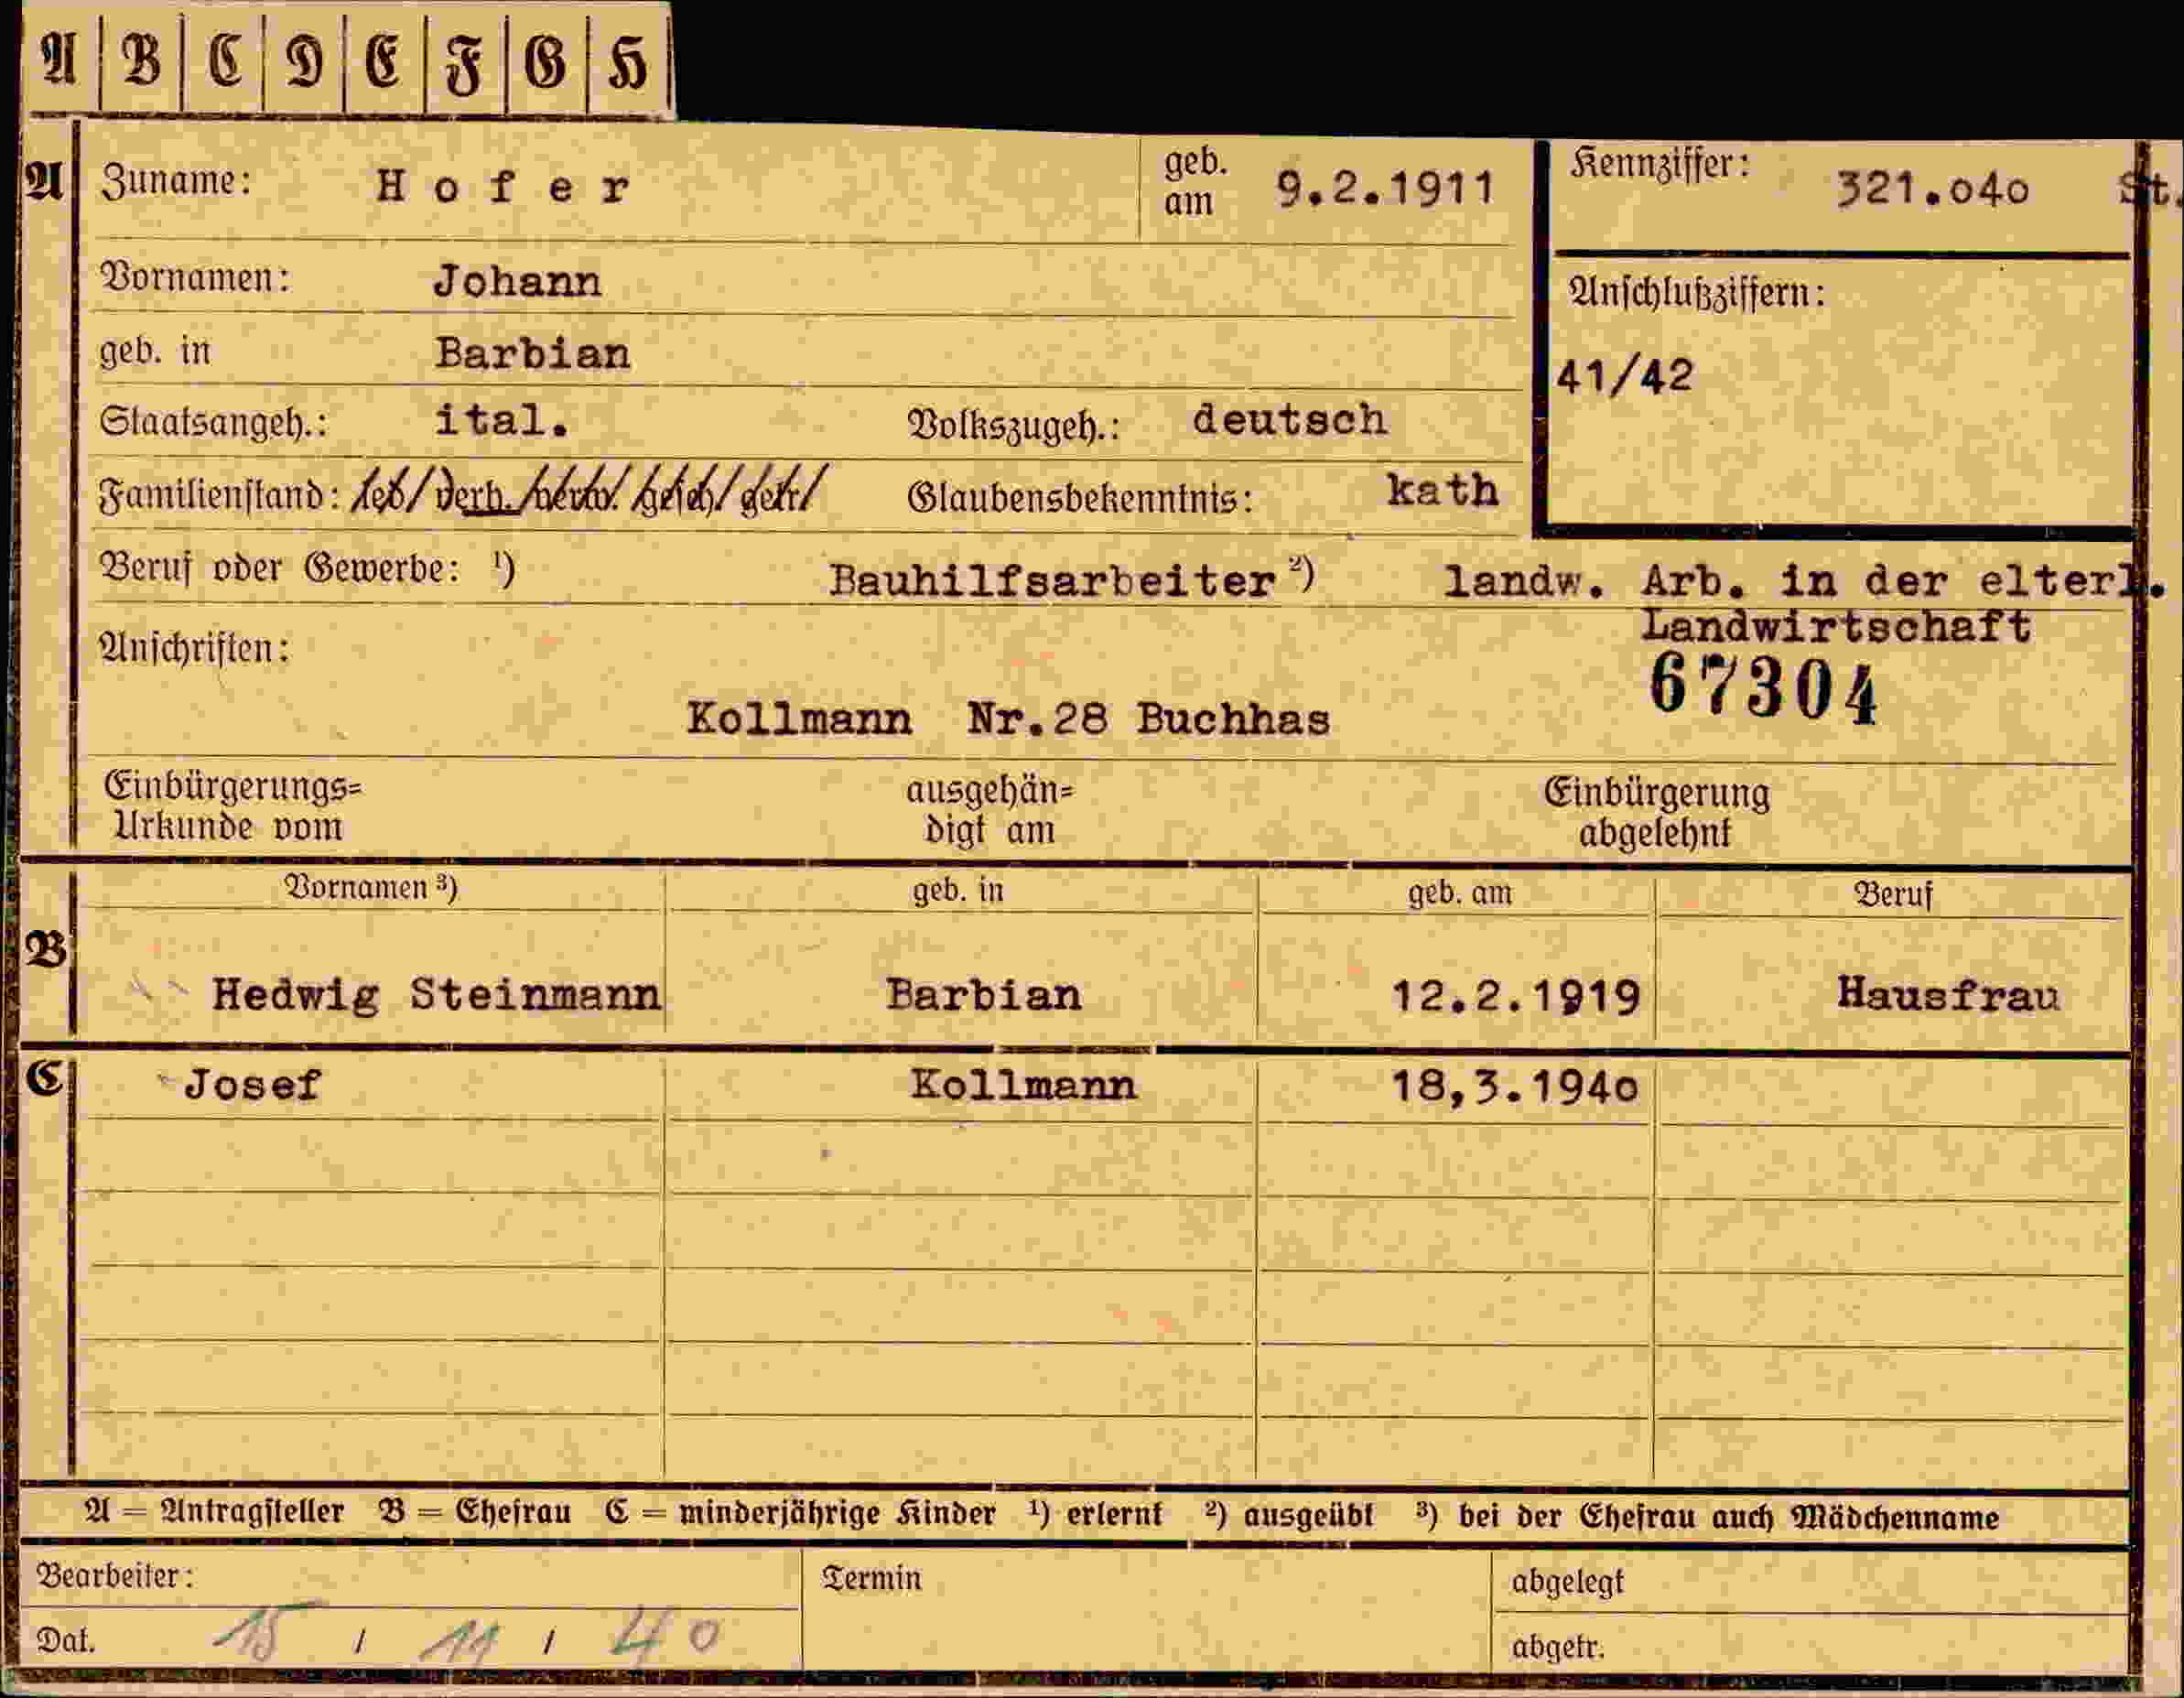 A B C D E F G H
A Zuname: Hofer geb. am 9.2.1911 Kennziffer: 321.o4o St.
Vornamen: Johann Anschlußziffern:
geb. in Barbian 41/42
Staatsangeh.: ital. Volkszugeh.: deutsch
Familienstand: led/verh./verw./gesch/getr/ Glaubensbekenntnis: kath
Beruf oder Gewerbe: ¹) Bauhilfsarbeiter ²) landw. Arb. in der elterl.
Landwirtschaft
Anschriften: 67304
Kollmann Nr.28 Buchhas
Einbürgerungs= ausgehän= Einbürgerung
Urkunde vom digt am abgelehnt
Vornamen ³) geb. in geb. am Beruf
B Hedwig Steinmann Barbian 12.2.1919 Hausfrau
C Josef Kollmann 18,3.194o
A = Antragsteller B = Ehefrau C = minderjährige Kinder ¹) erlernt ²) ausgeübt ³) bei der Ehefrau auch Mädchenname
Bearbeiter: Termin abgelegt
Dat. 15 / 11 / 40 abgetr.